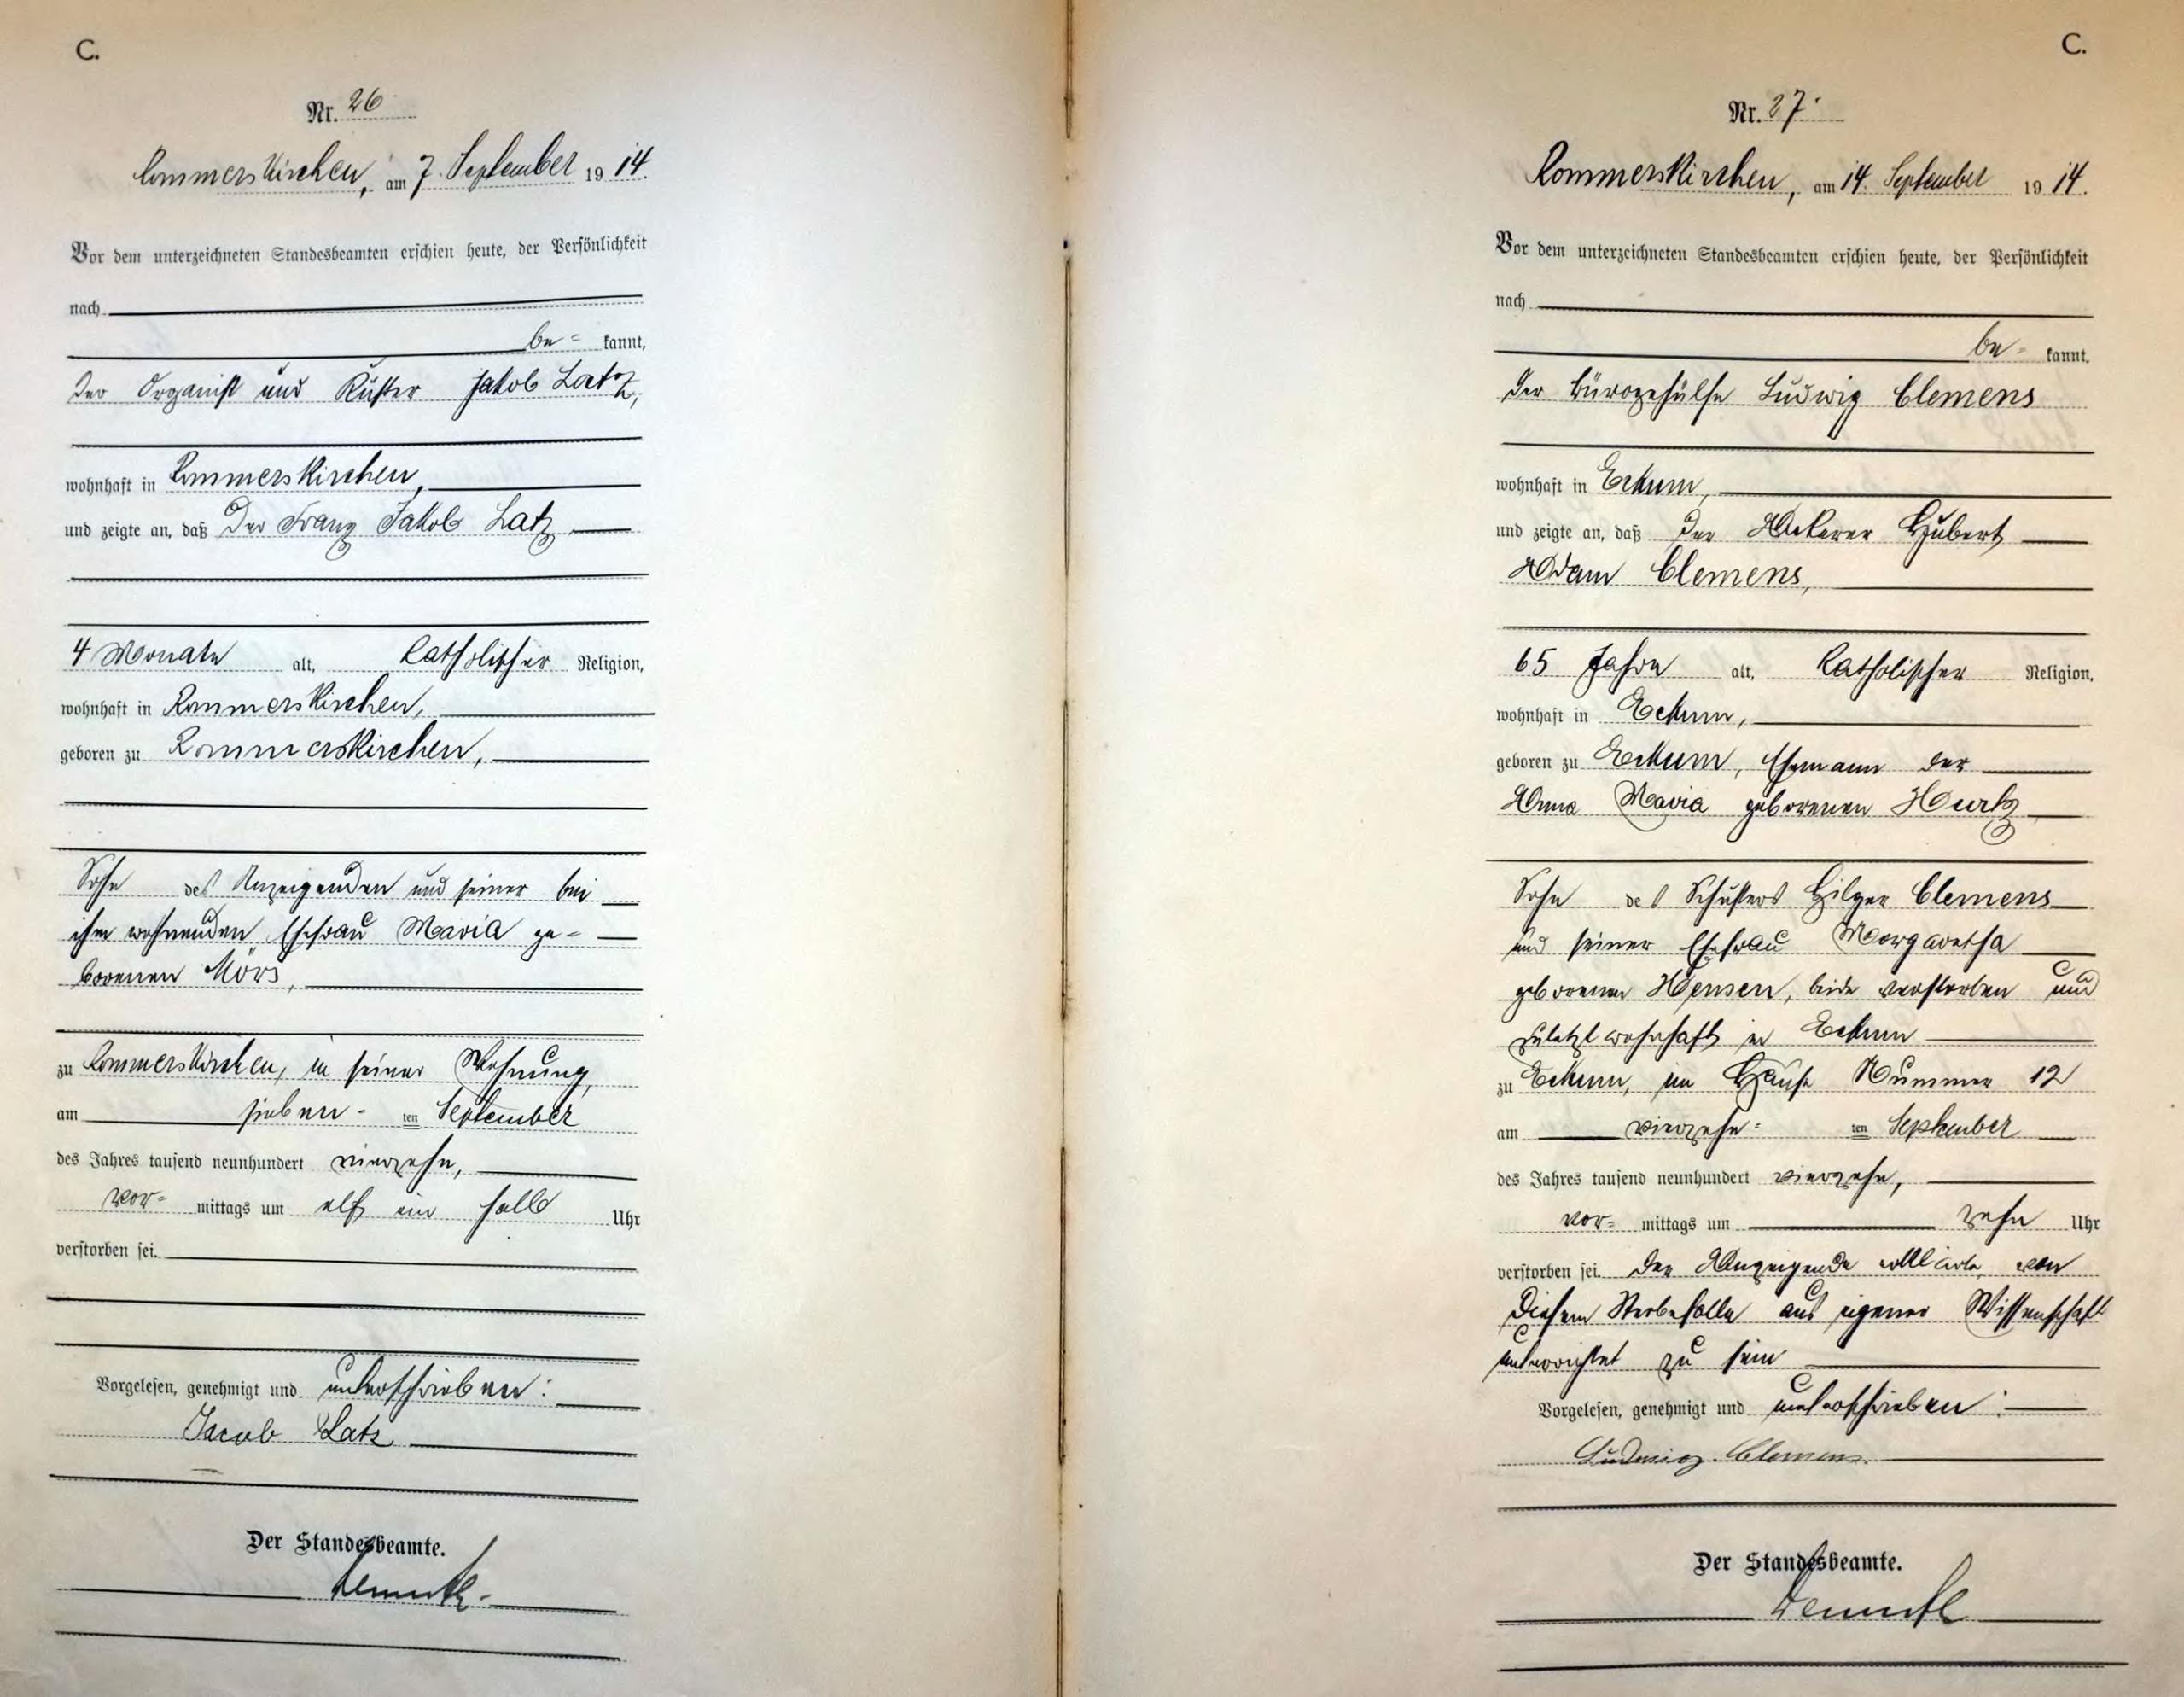 C.
Nr. 26
Rommerskirchen, am 7. September 19 14.
Vor dem unterzeichneten Standesbeamten erschien heute, der Persönlichkeit
nach
be= kannt,
der Organist und Küster Jakob Latz,
wohnhaft in Rommerskirchen,
und zeigte an, daß der Franz Jakob Latz
4 Monate alt, katholischer Religion,
wohnhaft in Rommerskirchen,
geboren zu Rommerskirchen,
Sohn des Anzeigenden und seiner bei
ihm wohnenden Ehefrau Maria ge=
borenen Mörs,
zu Rommerskirchen, in seiner Wohnung,
am sieben= ten September
des Jahres tausend neunhundert vierzehn,
vor= mittags um elf ein halb Uhr
verstorben sei.
Vorgelesen, genehmigt und unterschrieben:
Jacob Latz
Der Standesbeamte.
C.
Nr. 27.
Rommerskirchen, am 14. September 19 14.
Vor dem unterzeichneten Standesbeamten erschien heute, der Persönlichkeit
nach
be= kannt,
der Bürogehülfe Ludwig Clemens
wohnhaft in Eckum,
und zeigte an, daß der Ackerer Hubert
Adam Clemens,
65 Jahre alt, katholischer Religion,
wohnhaft in Eckum,
geboren zu Eckum, Ehemann der
Anna Maria geborenen Hurtz
Sohn des Schusters Hilger Clemens
und seiner Ehefrau Margaretha
geborenen Hensen, beide verstorben und
zuletzt wohnhaft in Eckum
zu Eckum, im Hause Nummer 12
am vierzehn= ten September
des Jahres tausend neunhundert vierzehn,
vor= mittags um zehn Uhr
verstorben sei. Der Anzeigende erklärte, von
diesem Sterbefalle aus eigener Wissenschaft
unterrichtet zu sein
Vorgelesen, genehmigt und unterschrieben:
Ludwig Clemens.
Der Standesbeamte.